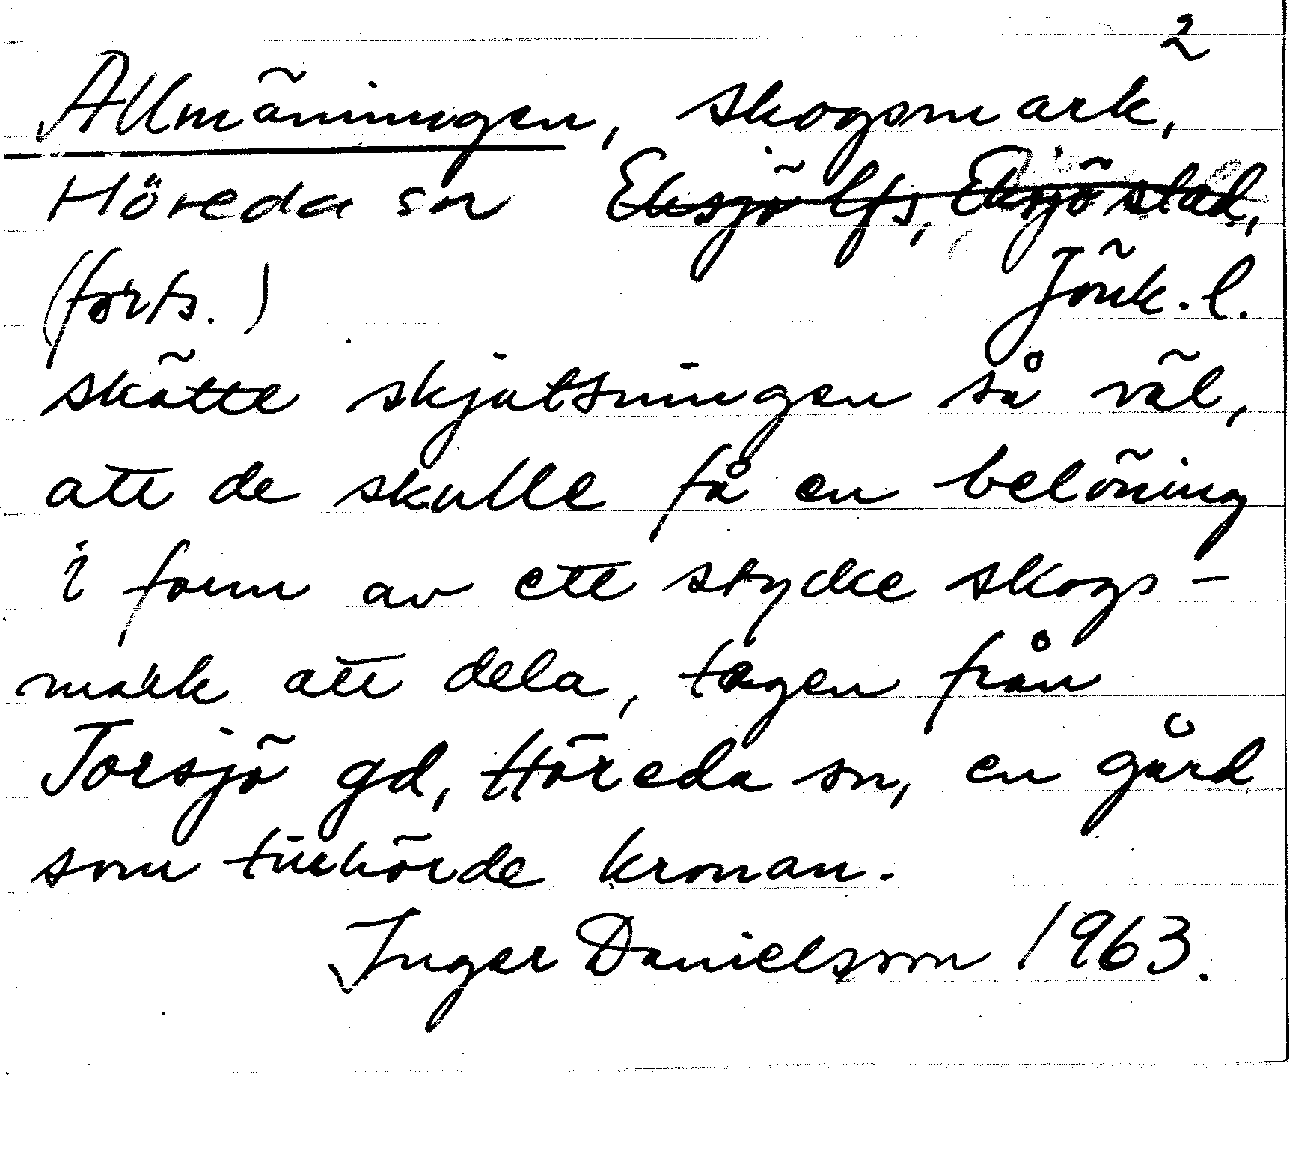 2
Allmäningen, skogsmark,
Höreda sn Eksjö lfs, Eksjö stad,
(forts.) Jönk. l.
skötte skjutsningen så väl,
att de skulle få en belöning
i form av ett stycke skogs-
mark att dela, tagen från
Torsjö gd, Höreda sn, en gård
som tillhörde kronan.
Inger Danielsson 1963.